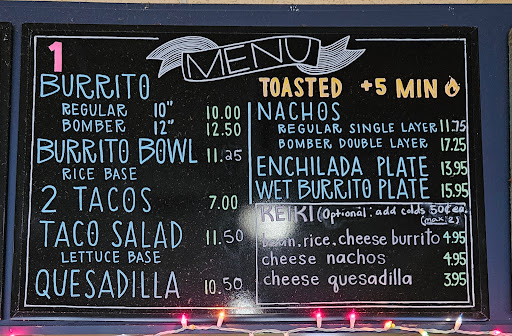 1
MENU
BURRITO
REGULAR 10" 10.00
BOMBER 12" 12.50
BURRITO BOWL 11.25
RICE BASE
2 TACOS 7.00
TACO SALAD 11.50
LETTUCE BASE
QUESADILLA 10.50
TOASTED +5 MIN
NACHOS
REGULAR SINGLE LAYER 11.75
BOMBER DOUBLE LAYER 17.25
ENCHILADA PLATE 13.95
WET BURRITO PLATE 15.95
KEIKI (Optional: add colds 50¢ ea.
(max 2)
bean, rice, cheese burrito 4.95
cheese nachos 4.95
cheese quesadilla 3.95